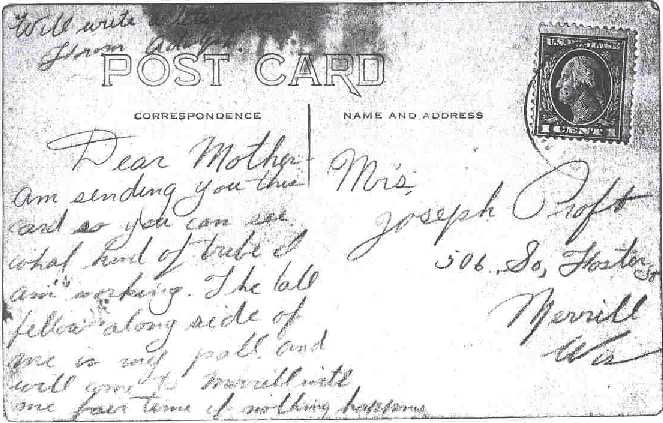 Will write a letter soon
From Adolph.
POST CARD
CORRESPONDENCE
NAME AND ADDRESS
U.S. POSTAGE
1 CENT 1
Dear Mother
Am sending you this
card so you can see
what kind of tribe I
am working. The tall
fellow along side of
me is my pall and
will come to Merrill with
me fair time if nothing happens
Mrs,
Joseph Proft
506. So, Foster St
Merrill
Wis